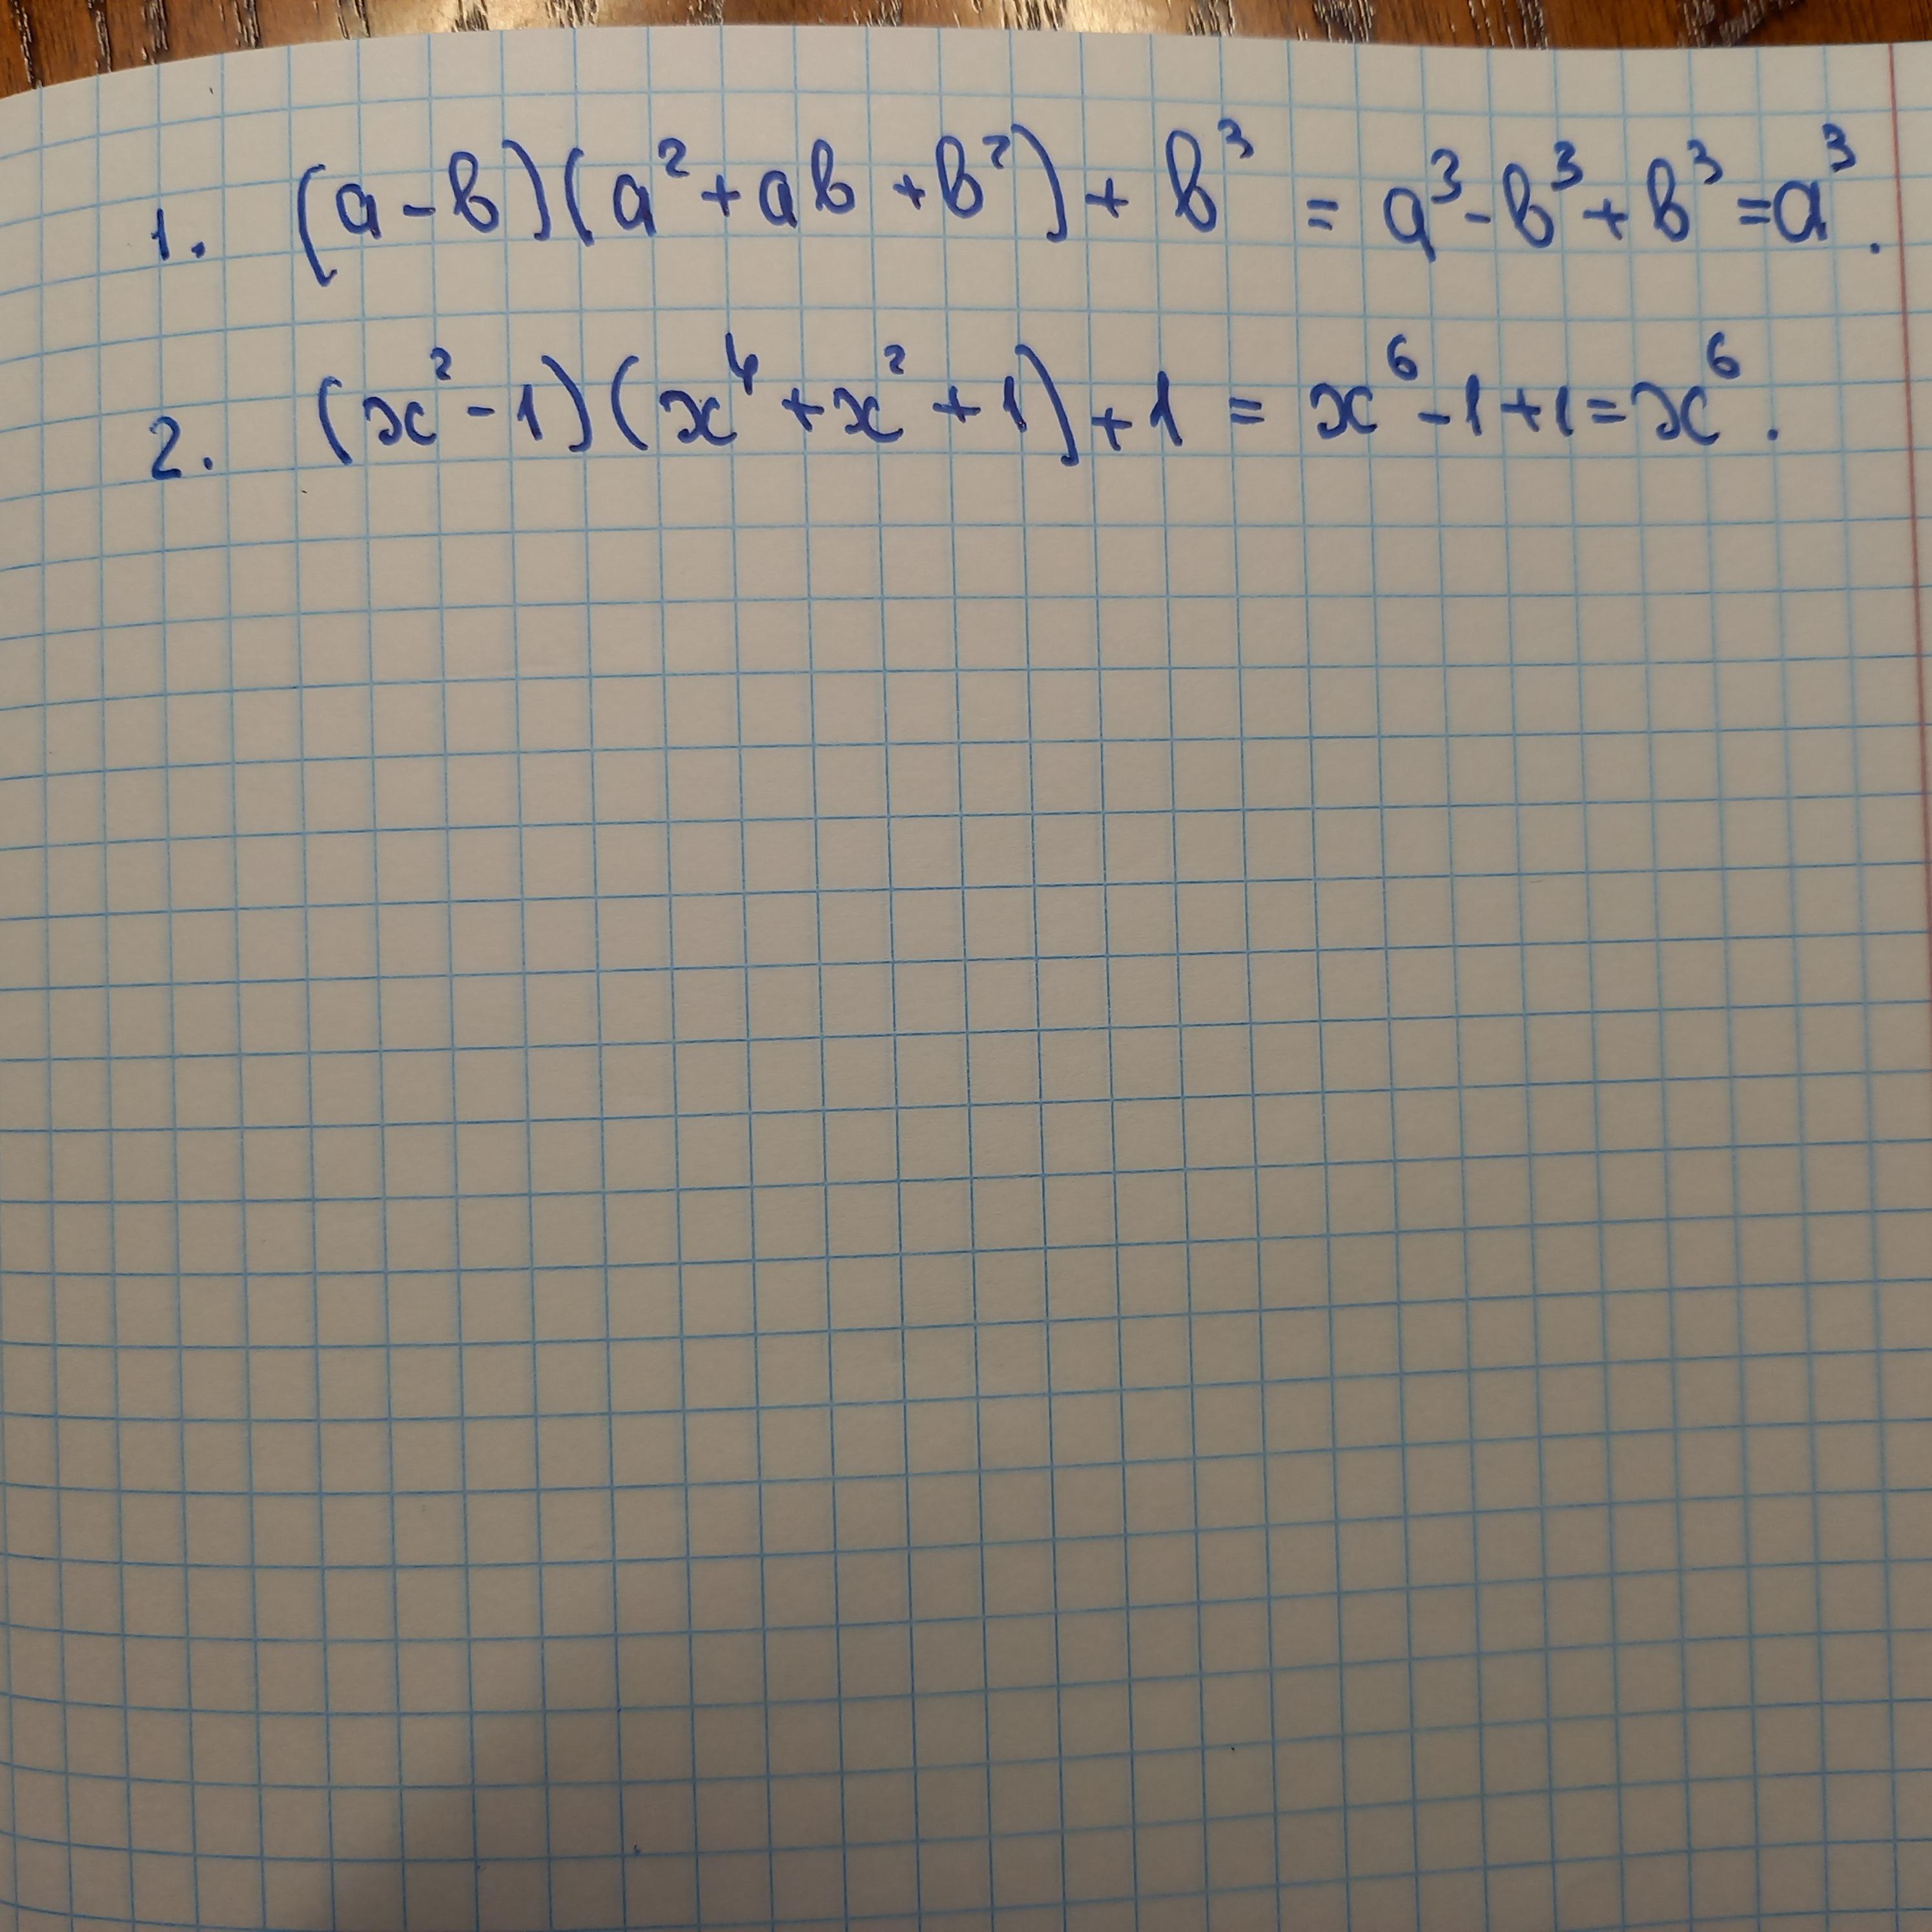 1. (a-b)(a²+ab+b²)+b³ = a³-b³+b³=a³.
2. (x²-1)(x⁴+x²+1)+1 = x⁶-1+1=x⁶.